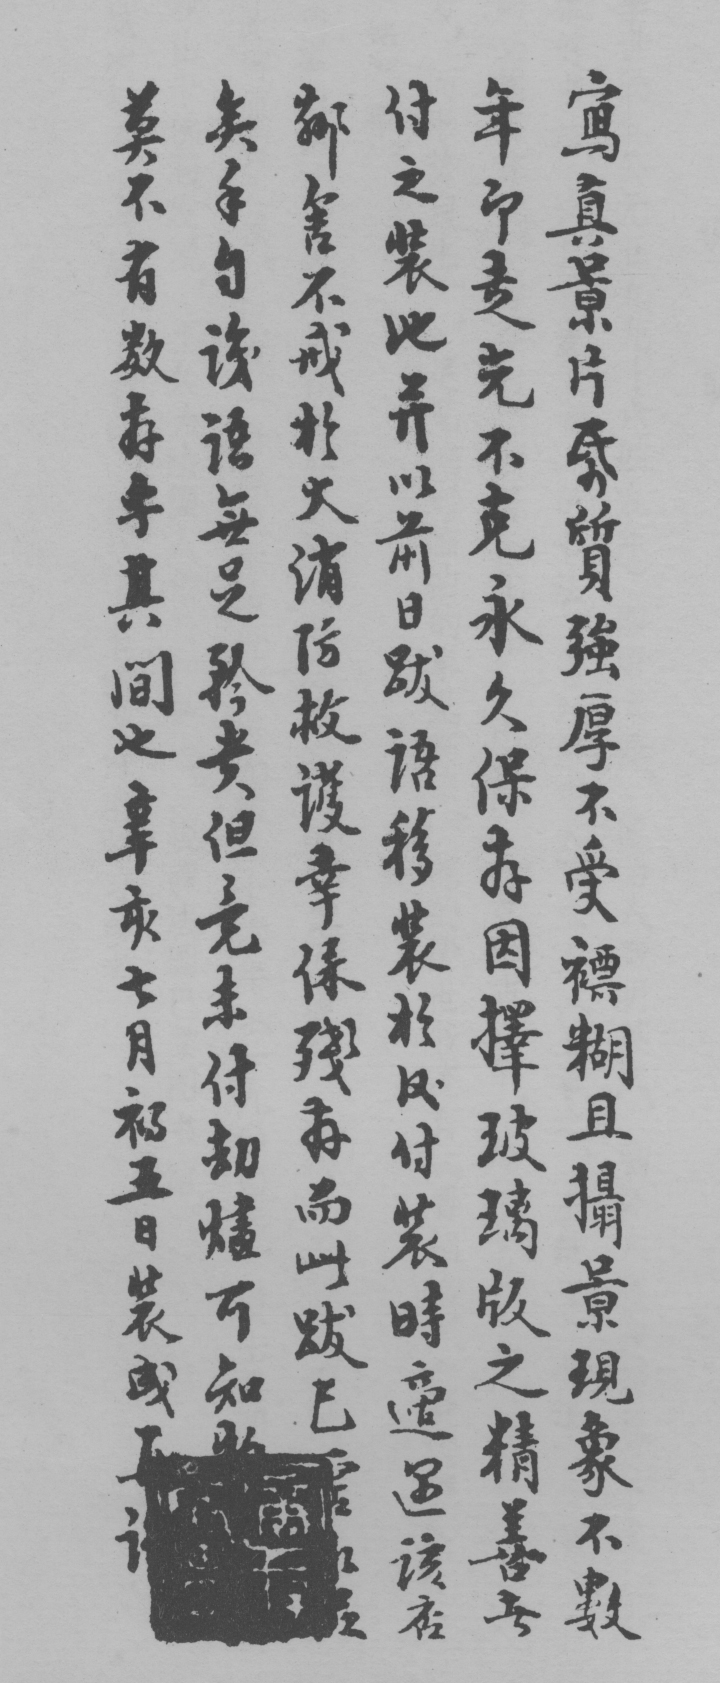 寫真景片紙質強厚不受褾糊且攝景現象不數
年即走光不克永久保存因擇玻璃版之精善者
付之裝池并以前日跋語移裝於後付裝時適遇該店
鄰舍不戒於火消防救護幸保殘存而此跋已
矣手自讀語無足矜貴但竟未付劫燼可知
莫不有數存乎其間也辜亥七月初五日裝成再識